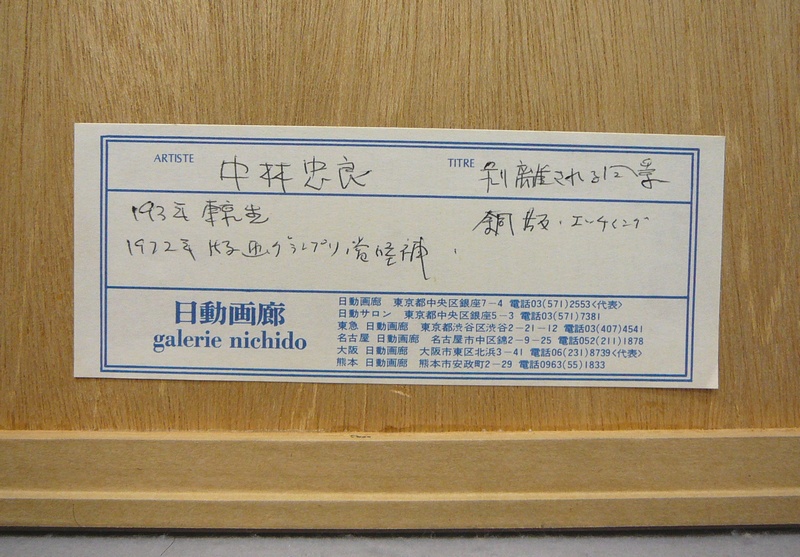 ARTISTE 中林忠良 TITRE 剥離される風景
銅版・エッチング
1972年
日動画廊
galerie nichido
日動画廊 東京都中央区銀座7-4 電話03(571)2553<代表>
日動サロン 東京都中央区銀座5-3 電話03(571)7381
東急 日動画廊 東京都渋谷区渋谷2-21-12 電話03(407)4541
名古屋 日動画廊 名古屋市中区錦2-9-25 電話052(211)1878
大阪 日動画廊 大阪市東区北浜3-41 電話06(231)8739<代表>
熊本 日動画廊 熊本市安政町2-29 電話0963(55)1833